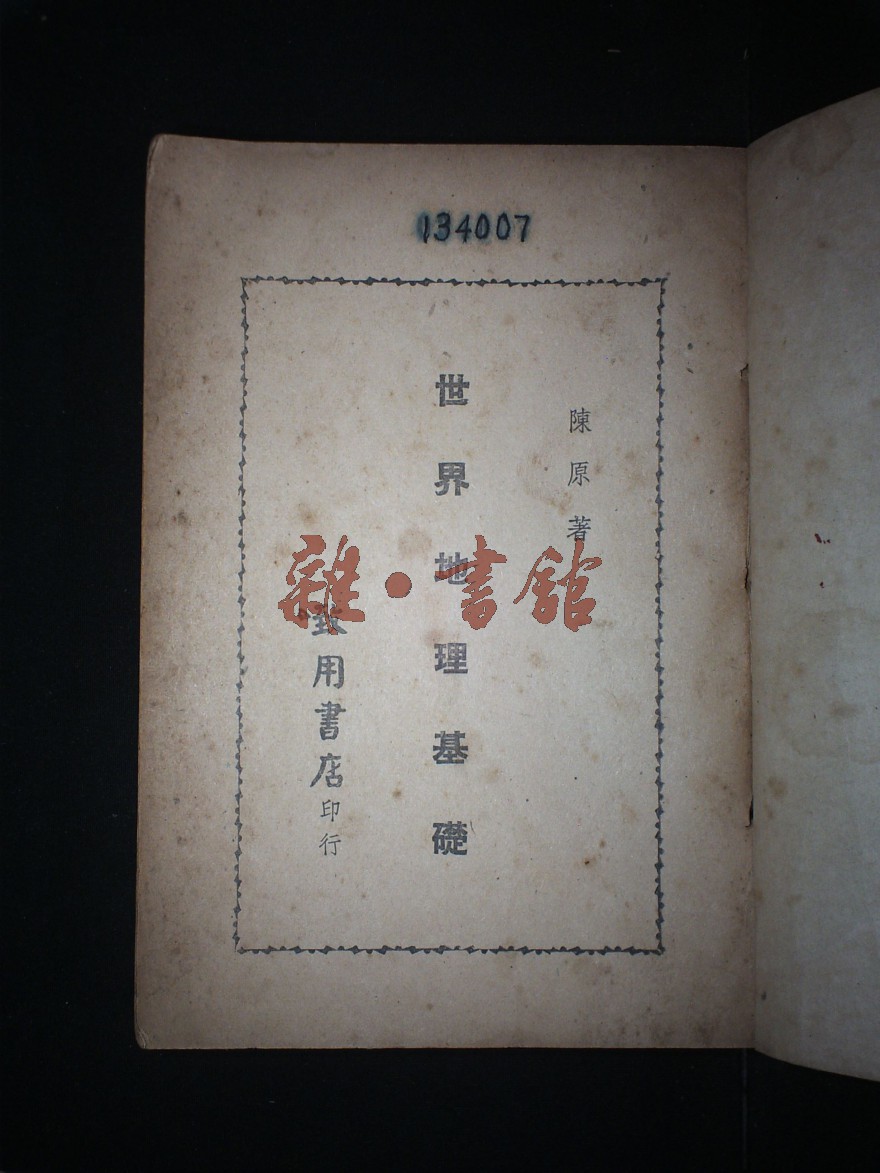 134007
陳原著
世界地理基礎
致用書店印行
雜·書館